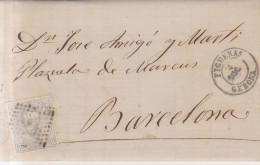 Dn Jose Amigó y Marti
Plazuela de Marcus
Barcelona
FIGUERAS
GERONA